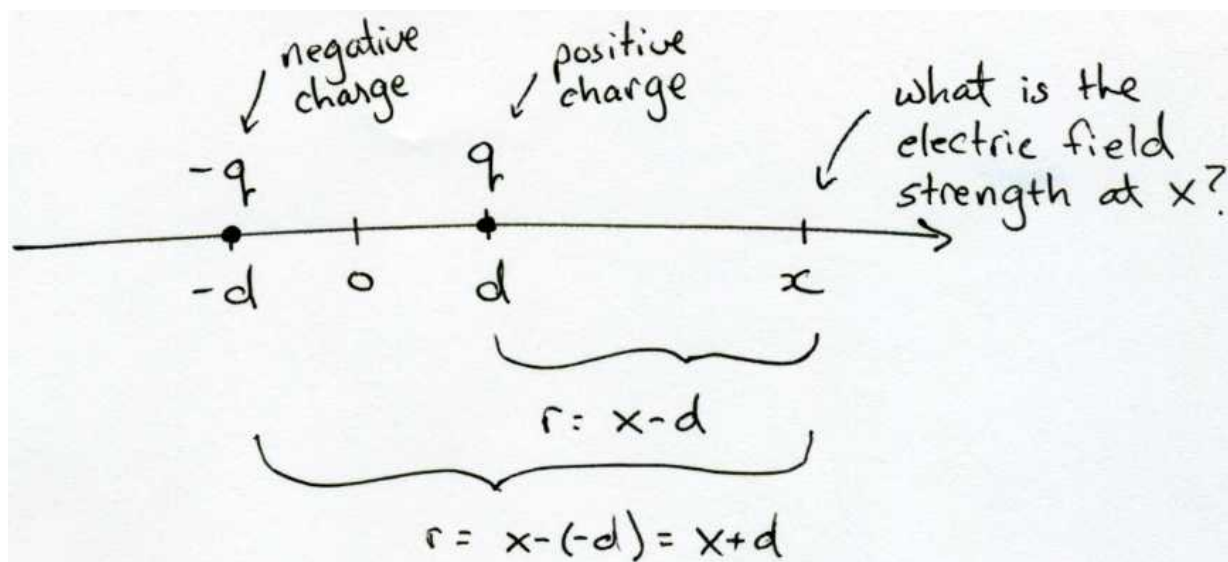 negative
charge
positive
charge
what is the
electric field
strength at x?
-q
q
-d
0
d
x
r = x-d
r = x-(-d) = x+d